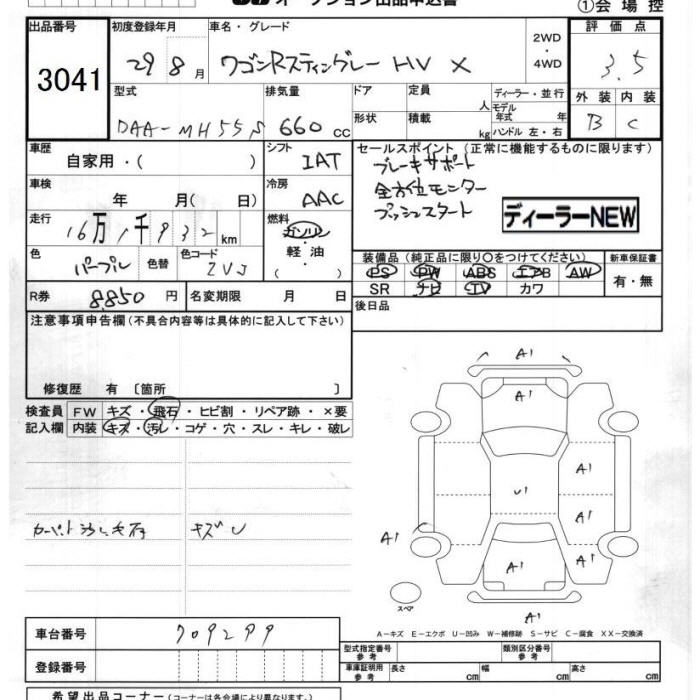 オークション出品申込書
①会場控
出品番号 3041
初度登録年月 29 8月
車名・グレード ワゴンRスティングレー HV X
2WD・4WD
評価点 3.5
型式 DAA-MH55S
排気量 660cc
ドア 形状
定員 人
積載 kg
ディーラー・並行
モデル年式 年
ハンドル 左・右
外装 B
内装 C
車歴 自家用・( )
シフト IAT
セールスポイント(正常に機能するものに限ります)
ブレーキサポート
全方位モニター
プッシュスタート
ディーラーNEW
車検 年 月( 日)
冷房 AAC
走行 16万1千932km
燃料 ガソリン 軽・油 ( )
色 パープル
色替
色コード ZVJ
装備品(純正品に限り○をつけてください)
新車保証書
PS PW ABS エアB AW
有・無
SR ナビ TV カワ
R券 8.850円
名変期限 月 日
後日品
注意事項申告欄(不具合内容等は具体的に記入して下さい)
修復歴 有〔箇所 〕
検査員記入欄
FW キズ・飛石・ヒビ割・リペア跡・×要
内装 キズ・汚レ・コゲ・穴・スレ・キレ・破レ
キズ U
A1
A1
A1
U1
A1
A1
A1
A1
A1
スペア
A1
A-キズ E-エクボ U-凹み W-補修跡 S-サビ C-腐食 XX-交換済
車台番号 709299
登録番号
型式指定番号 参考
類別区分番号 参考
車庫証明用 参考
長さ cm
幅 cm
高さ cm
希望出品コーナー(コーナーは各会場により異なります。)